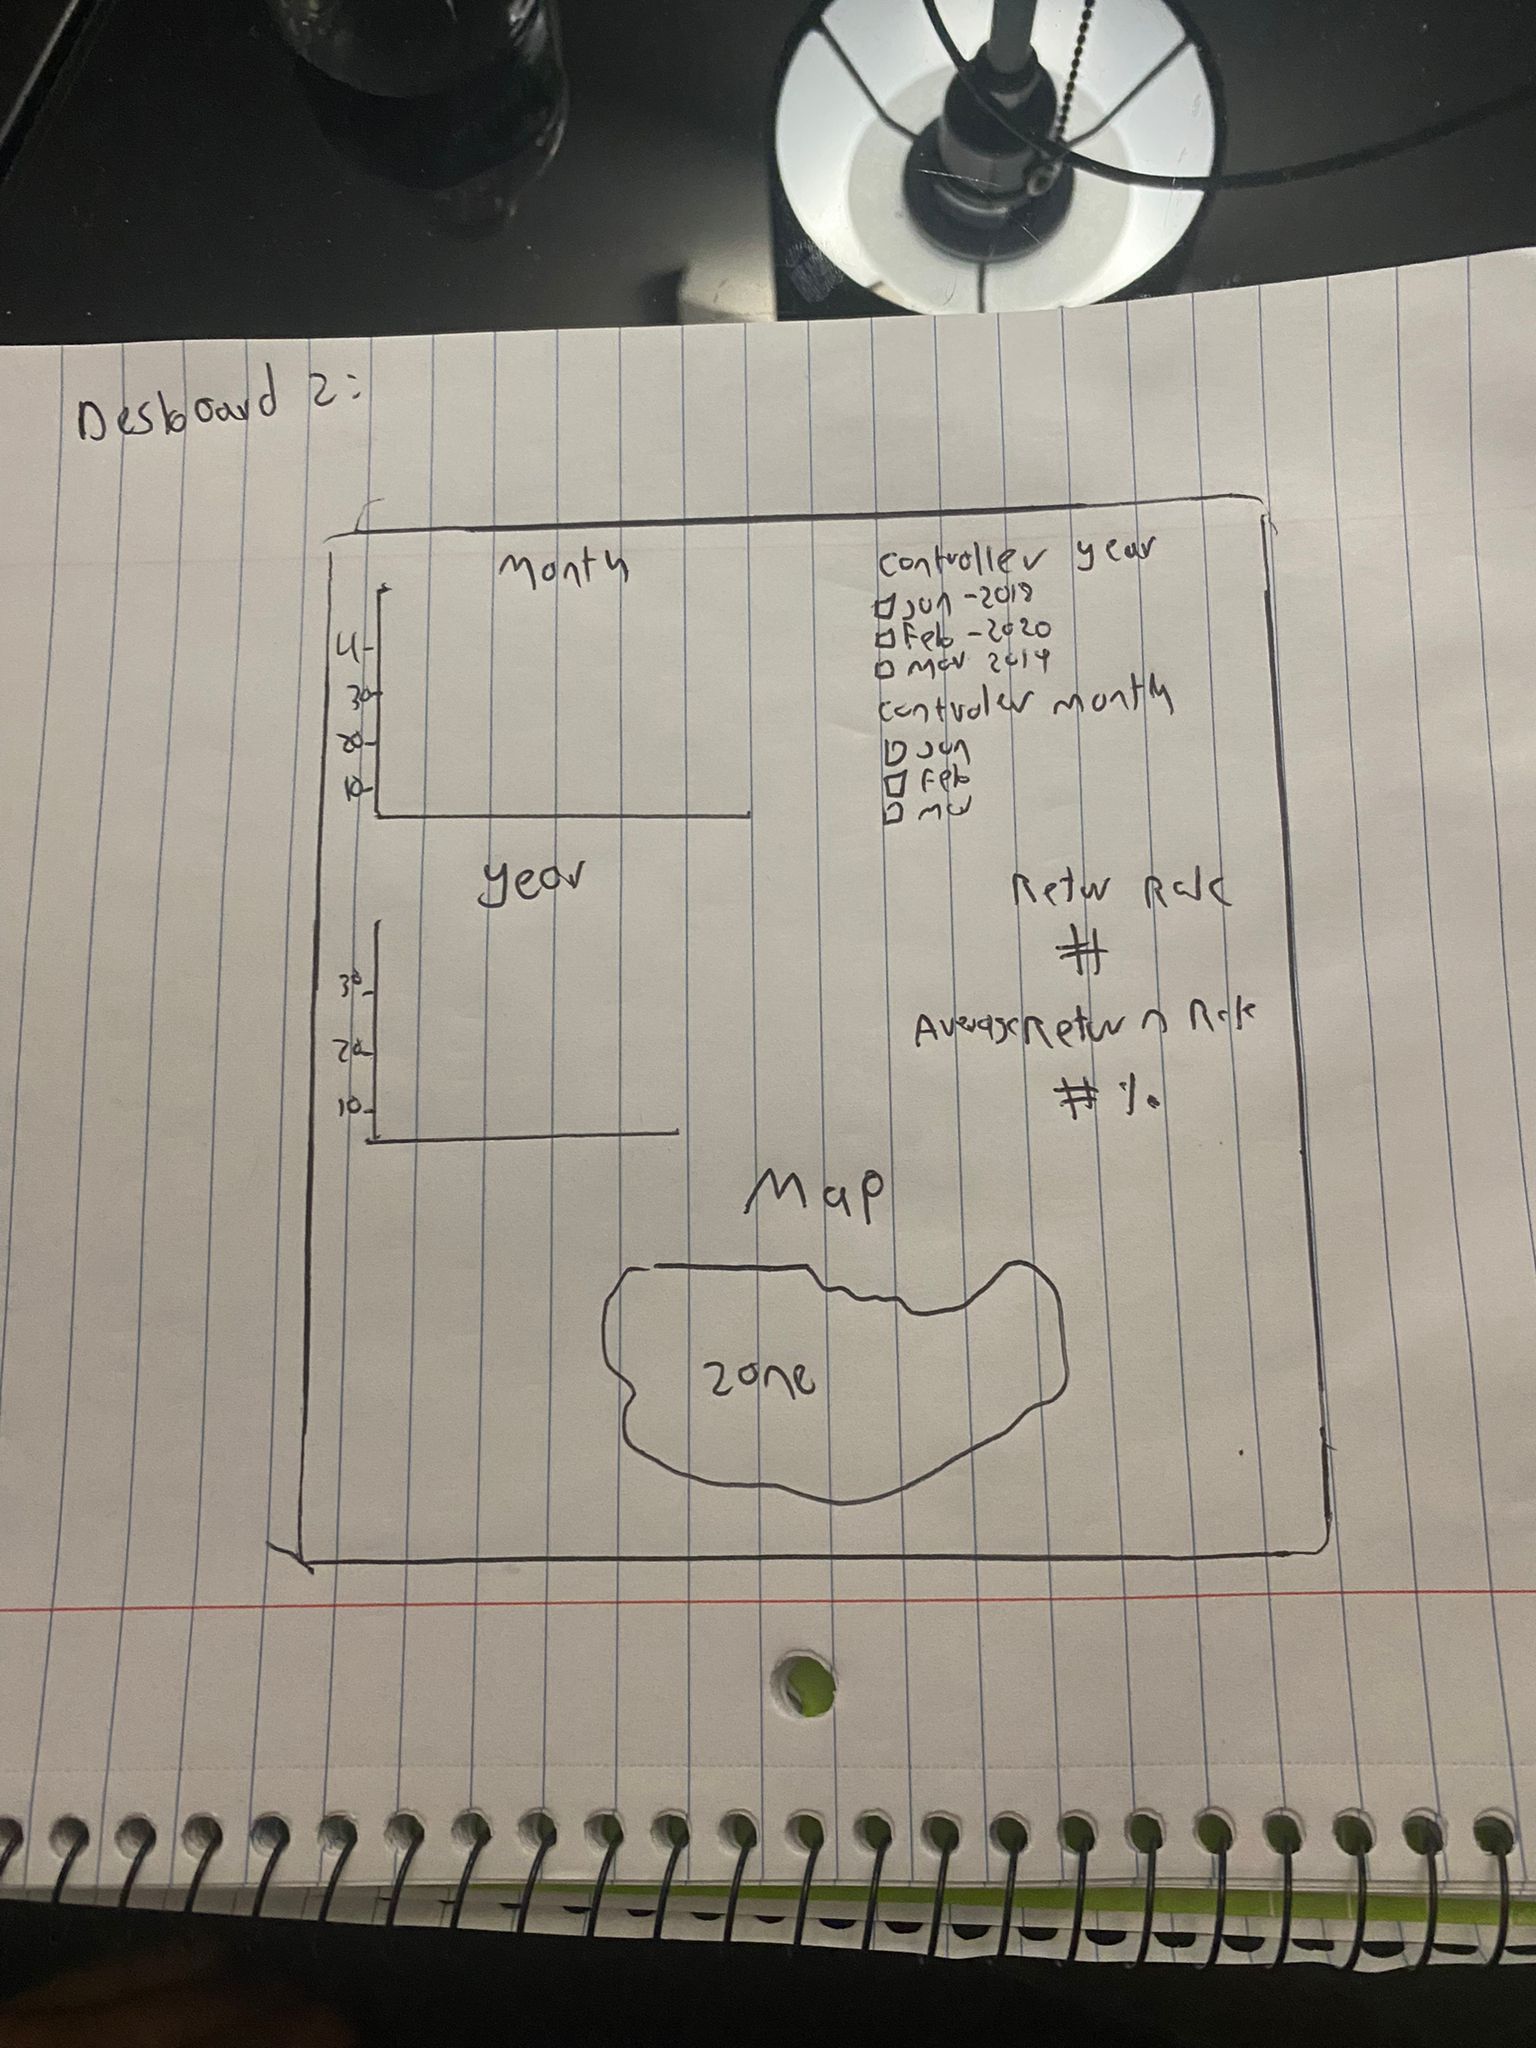 Desboard 2:
Month
4
30
20
10
Controller year
Jan -2018
Feb -2020
Mar 2019
Controler month
Jan
Feb
Mar
year
30
20
10
Retur Rate
#
Average Return Rate
# %
Map
zone